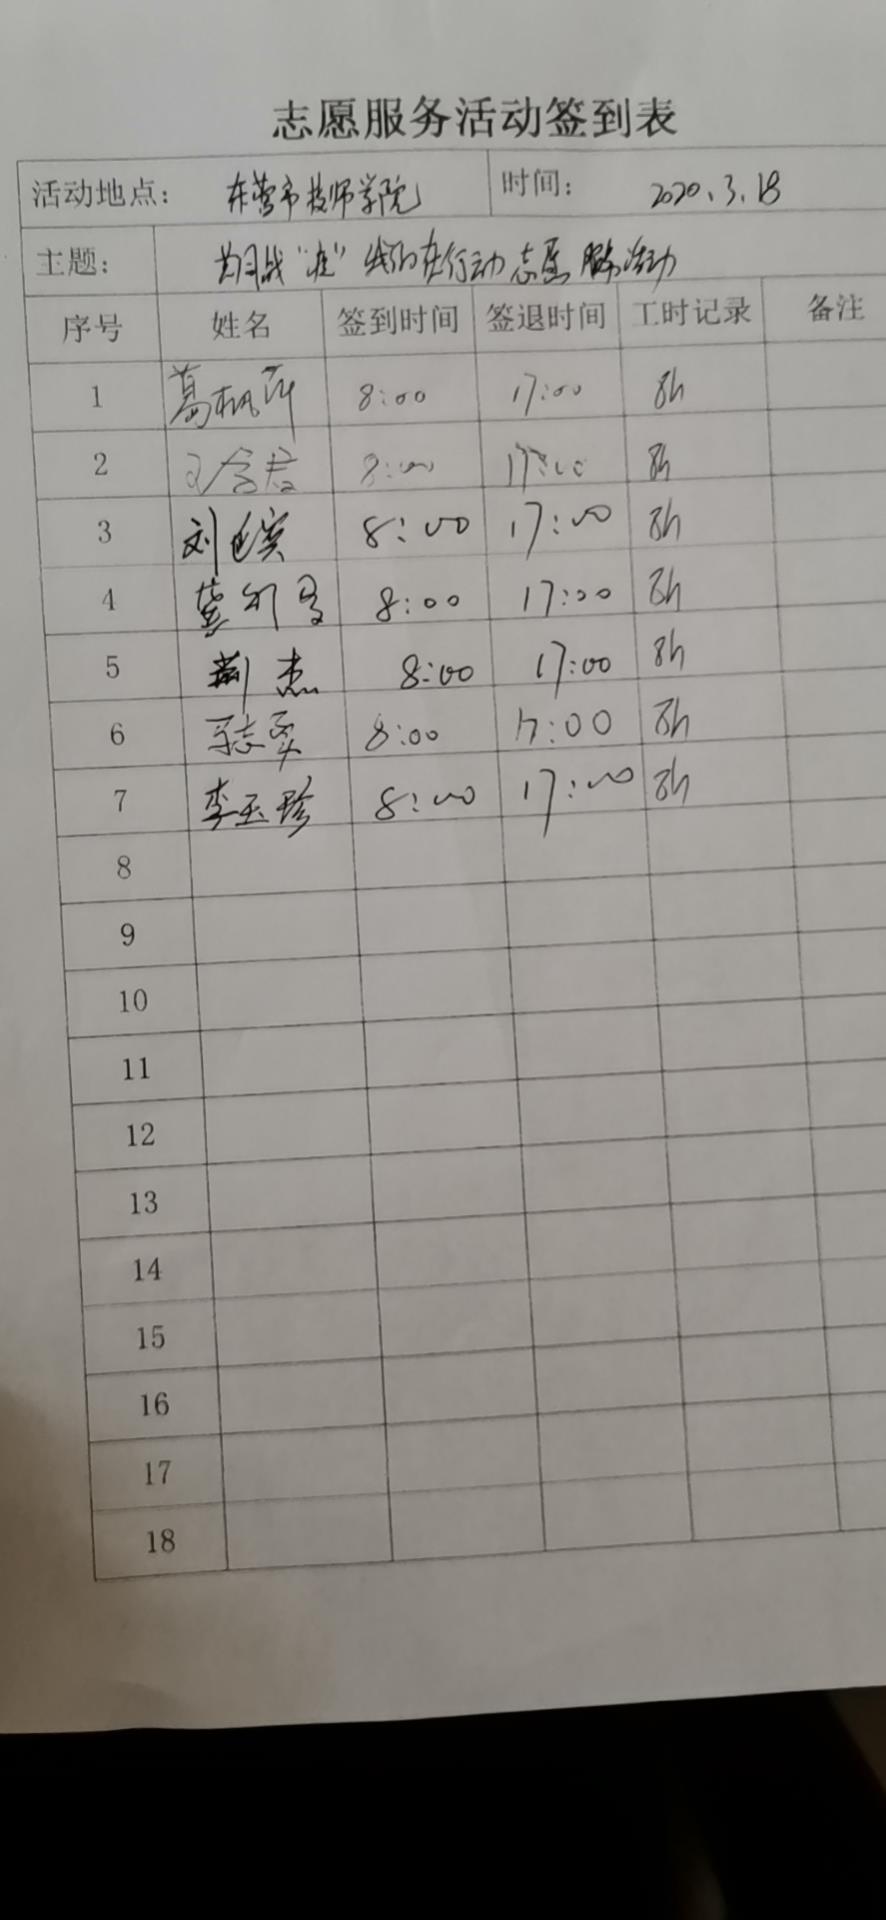 志愿服务活动签到表
活动地点： 东营市技师学院 时间： 2020.3.18
主题： 战"疫" 我们在行动 志愿服务活动
序号 姓名 签到时间 签退时间 工时记录 备注
1 葛 8:00 17:00 8h
2 8:00 17:00 8h
3 刘 8:00 17:00 8h
4 龚 8:00 17:00 8h
5 荆杰 8:00 17:00 8h
6 志 8:00 17:00 8h
7 李玉珍 8:00 17:00 8h
8
9
10
11
12
13
14
15
16
17
18